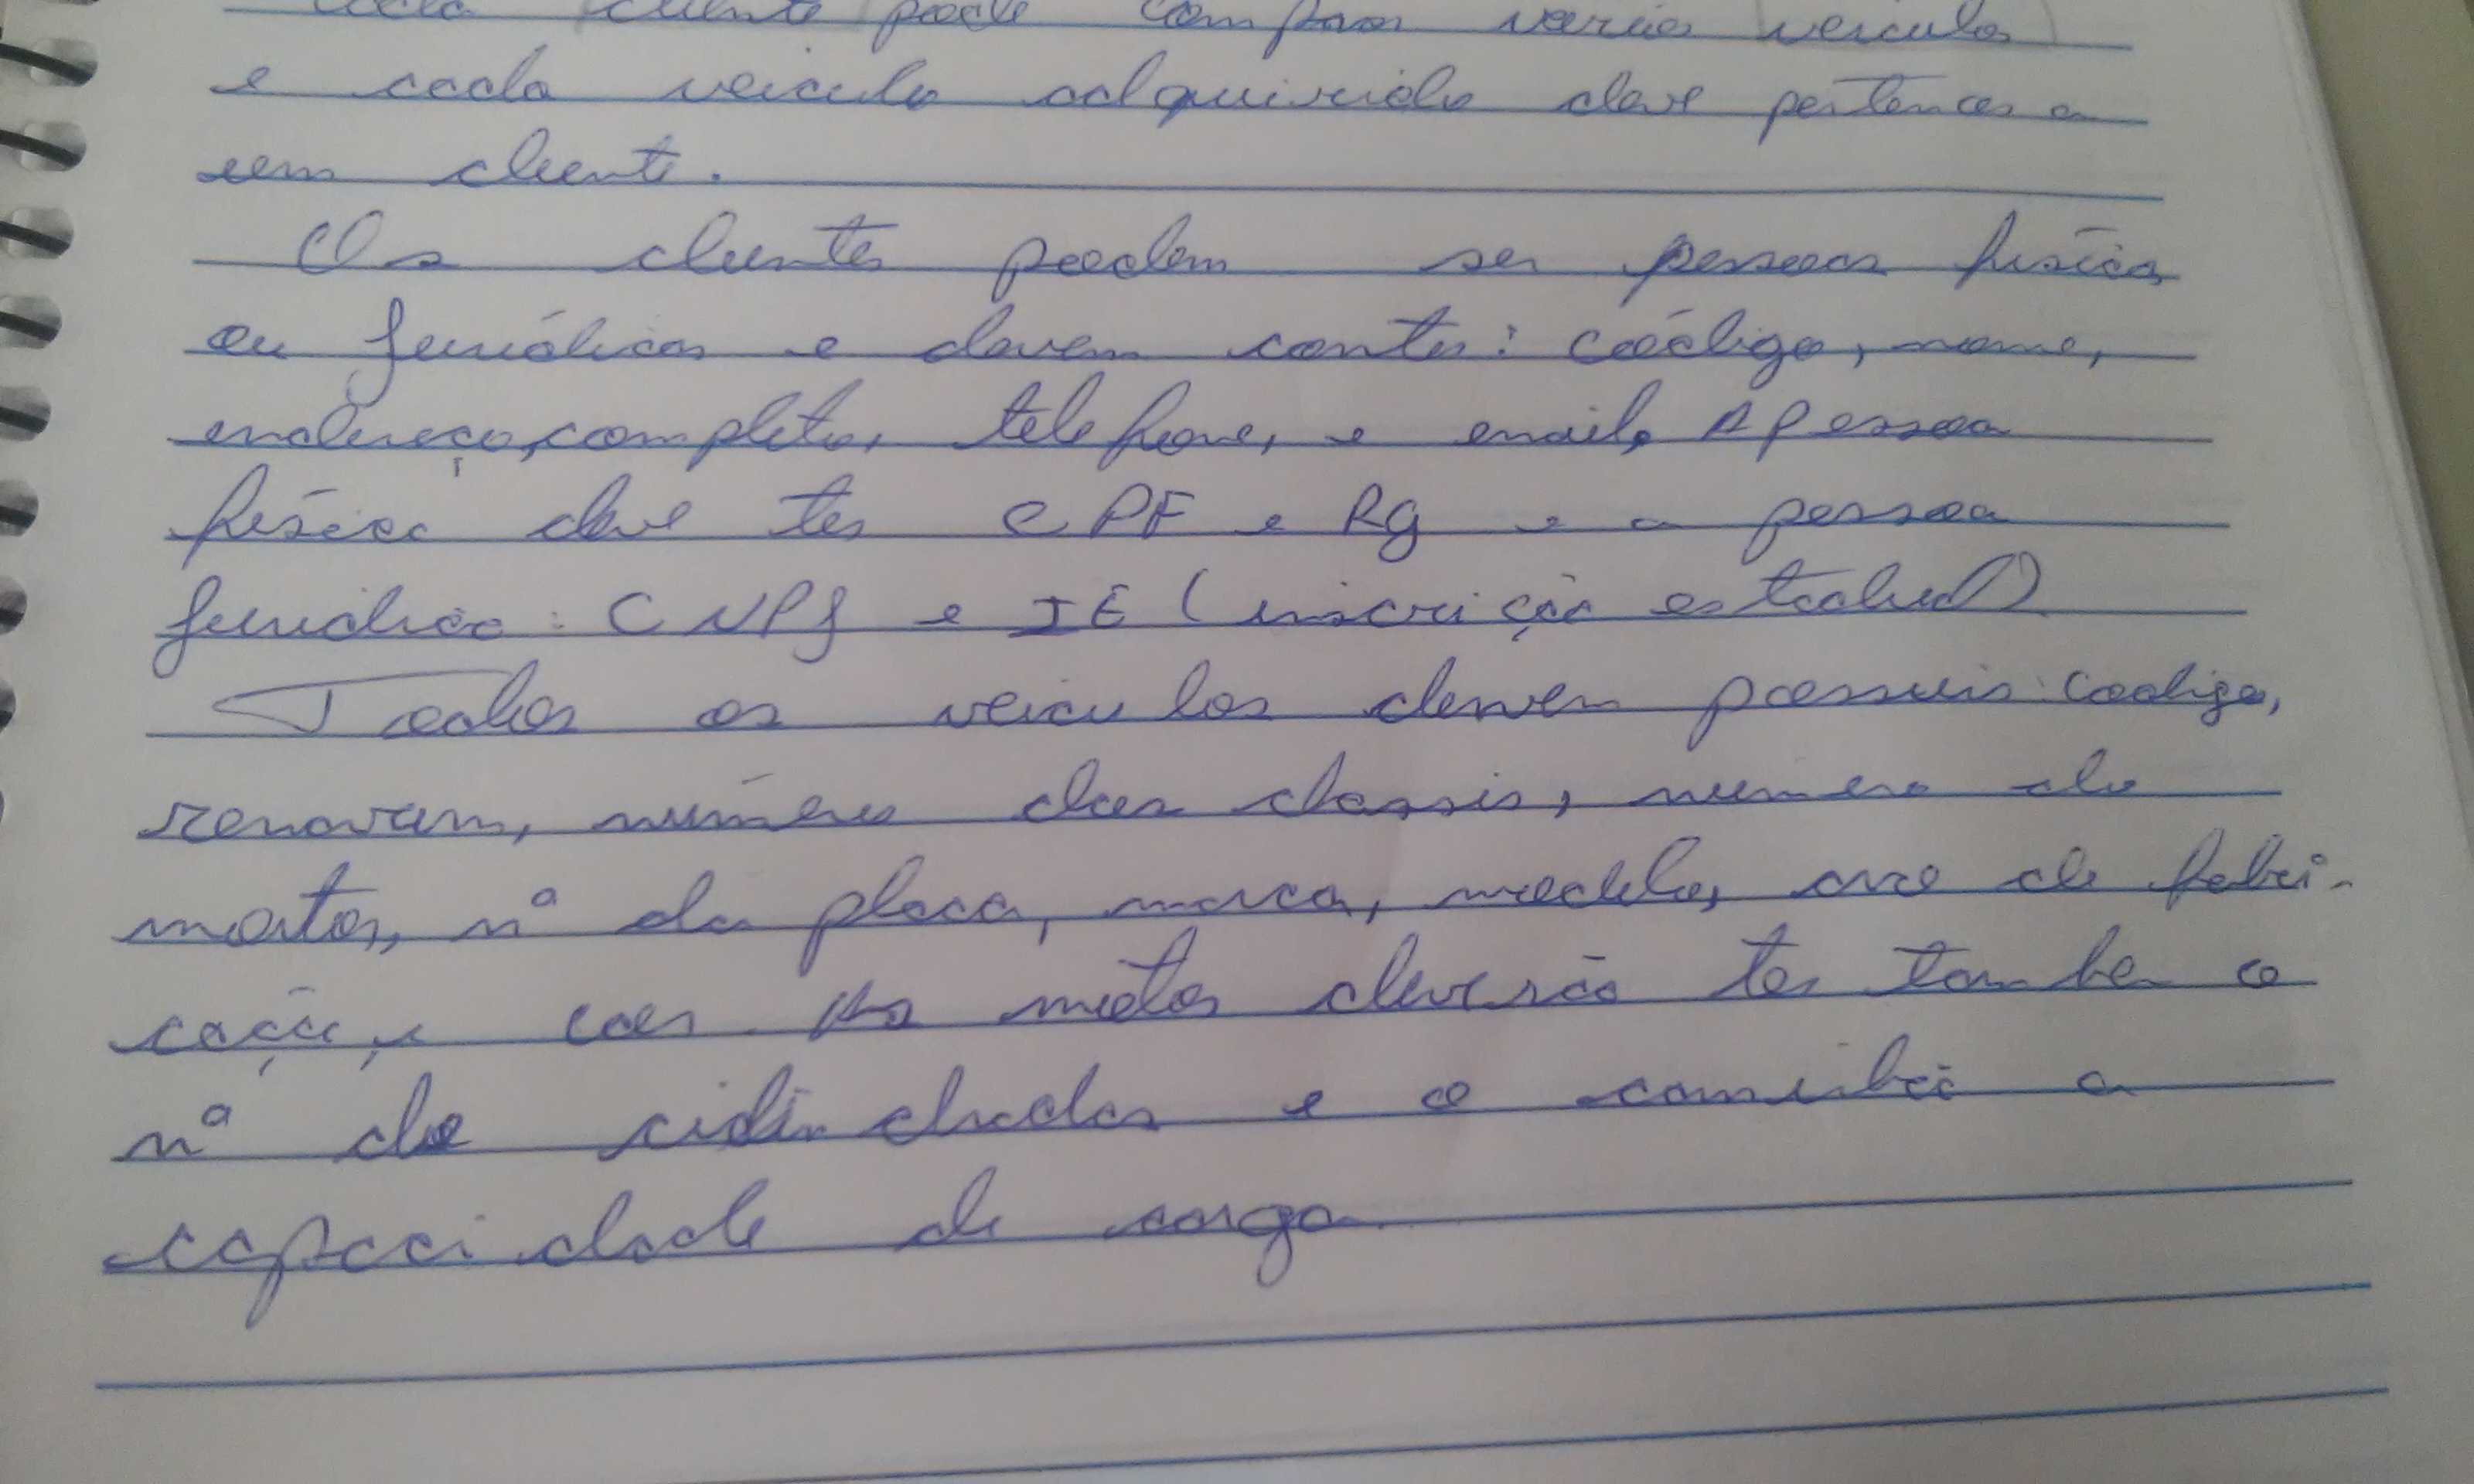 cada cliente pode comprar varios veiculos
e cada veiculo adquirido deve pertencer a
um cliente.
Os clientes podem ser pessoas física
ou jurídicas e devem conter: código, nome,
endereço, completo, telefone, e email, A pessoa
física deve ter CPF e Rg e a pessoa
juridica: CNPJ e IE (inscrição estadual)
Todos os veiculos devem possuir: codigo,
renavam, número das chassis, numero do
motor, nº da placa, marca, modelo, ano de fabri-
cação, e cor. As motos deverão ter tambem o
nº de cidindradas e o caminhão a
capacidade de carga.